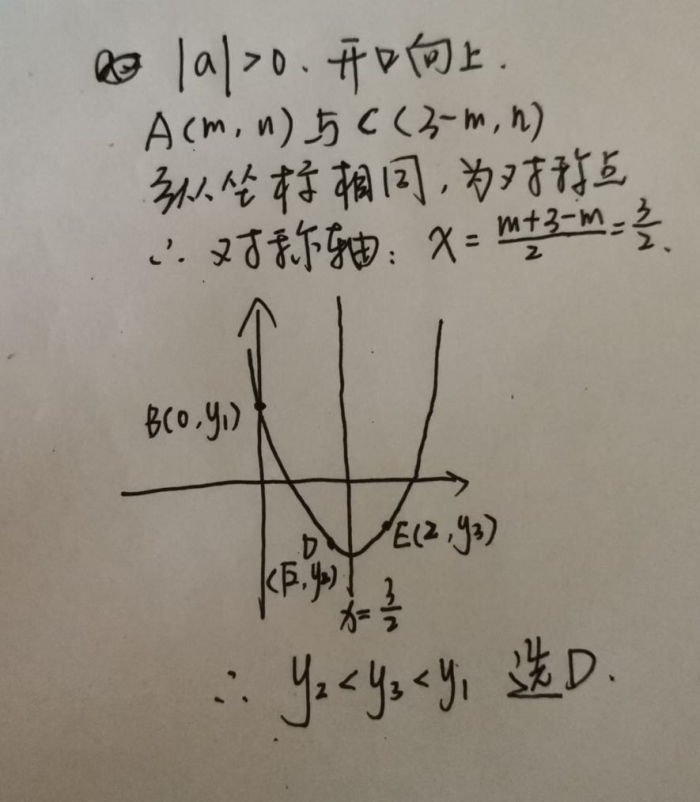 |a|>0. 开口向上.
A(m, n)与C(3-m, n)
纵坐标相同, 为对称点
∴ 对称轴: x = \frac{m+3-m}{2} = \frac{3}{2}.
B(0, y₁)
D
E(2, y₃)
(√2, y₂)
x = \frac{3}{2}
∴ y₂ < y₃ < y₁ 选D.